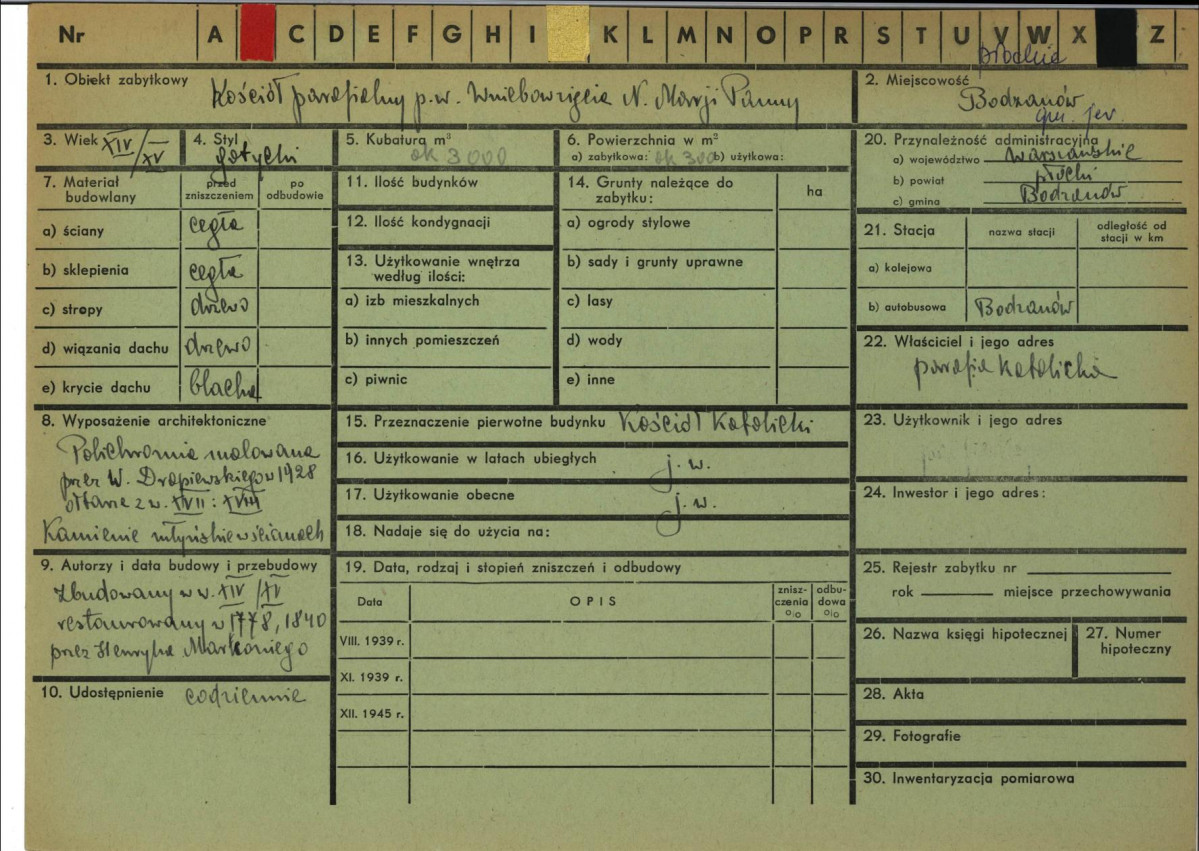 Nr A C D E F G H I K L M N O P R S T U V W X Z
płockie
1. Obiekt zabytkowy Kościół parafialny p.w. Wniebowzięcia N. Marji Panny
2. Miejscowość
Bodzanów
gm. jw.
3. Wiek XIV/XV
4. Styl gotycki
5. Kubatura m³ ok 3000
6. Powierzchnia w m²
a) zabytkowa: ok 300 b) użytkowa:
20. Przynależność administracyjna
a) województwo warszawskie
b) powiat płocki
c) gmina Bodzanów
7. Materiał budowlany
przed zniszczeniem
po odbudowie
a) ściany cegła
b) sklepienia cegła
c) stropy drzewo
d) wiązania dachu drzewo
e) krycie dachu blacha
11. Ilość budynków
12. Ilość kondygnacji
13. Użytkowanie wnętrza
według ilości:
a) izb mieszkalnych
b) innych pomieszczeń
c) piwnic
14. Grunty należące do
zabytku:
ha
a) ogrody stylowe
b) sady i grunty uprawne
c) lasy
d) wody
e) inne
21. Stacja
nazwa stacji
odległość od
stacji w km
a) kolejowa
b) autobusowa Bodzanów
22. Właściciel i jego adres
parafia katolicka
8. Wyposażenie architektoniczne
Polichromia malowana
przez W. Drapiewskiego w 1928
ołtarze z w. XVII i XVIII
Kamienie młyńskie w ścianach
15. Przeznaczenie pierwotne budynku Kościół Katolicki
16. Użytkowanie w latach ubiegłych j. w.
17. Użytkowanie obecne j. w.
18. Nadaje się do użycia na:
23. Użytkownik i jego adres
24. Inwestor i jego adres:
9. Autorzy i data budowy i przebudowy
Zbudowany w w. XIV/XV
restaurowany w 1778, 1840
przez Henryka Markoniego
10. Udostępnienie codziennie
19. Data, rodzaj i stopień zniszczeń i odbudowy
Data
OPIS
znisz-
czenia
%
odbu-
dowa
%
VIII. 1939 r.
XI. 1939 r.
XII. 1945 r.
25. Rejestr zabytku nr
rok miejsce przechowywania
26. Nazwa księgi hipotecznej
27. Numer
hipoteczny
28. Akta
29. Fotografie
30. Inwentaryzacja pomiarowa